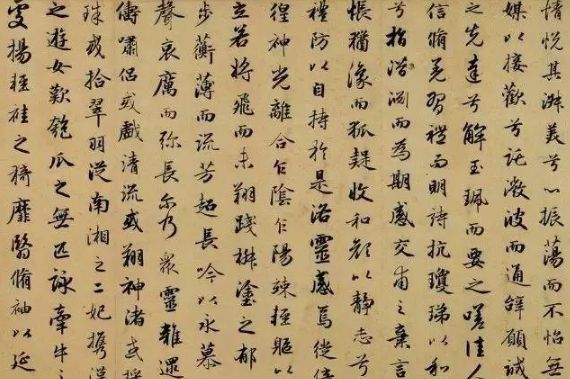 情悅其淑美兮心振蕩而不怡無
媒以接歡兮託微波而通辭願誠
之先達兮解玉珮而要之嗟佳人
信脩羌習禮而明詩抗瓊珶以和
兮指潛淵而為期感交甫之棄言
悵猶豫而狐疑收和顏以靜志兮
禮防以自持於是洛靈感焉徙倚
徨神光離合乍陰乍陽竦輕軀以
立若將飛而未翔踐椒塗之郁
步蘅薄而流芳超長吟以永慕
聲哀厲而弥長尒乃眾靈雜遝
儔嘯侶或戲清流或翔神渚或採
珠或拾翠羽從南湘之二妃攜漢
之遊女歎匏瓜之無匹詠牽牛之
處揚輕袿之猗靡翳脩袖以延